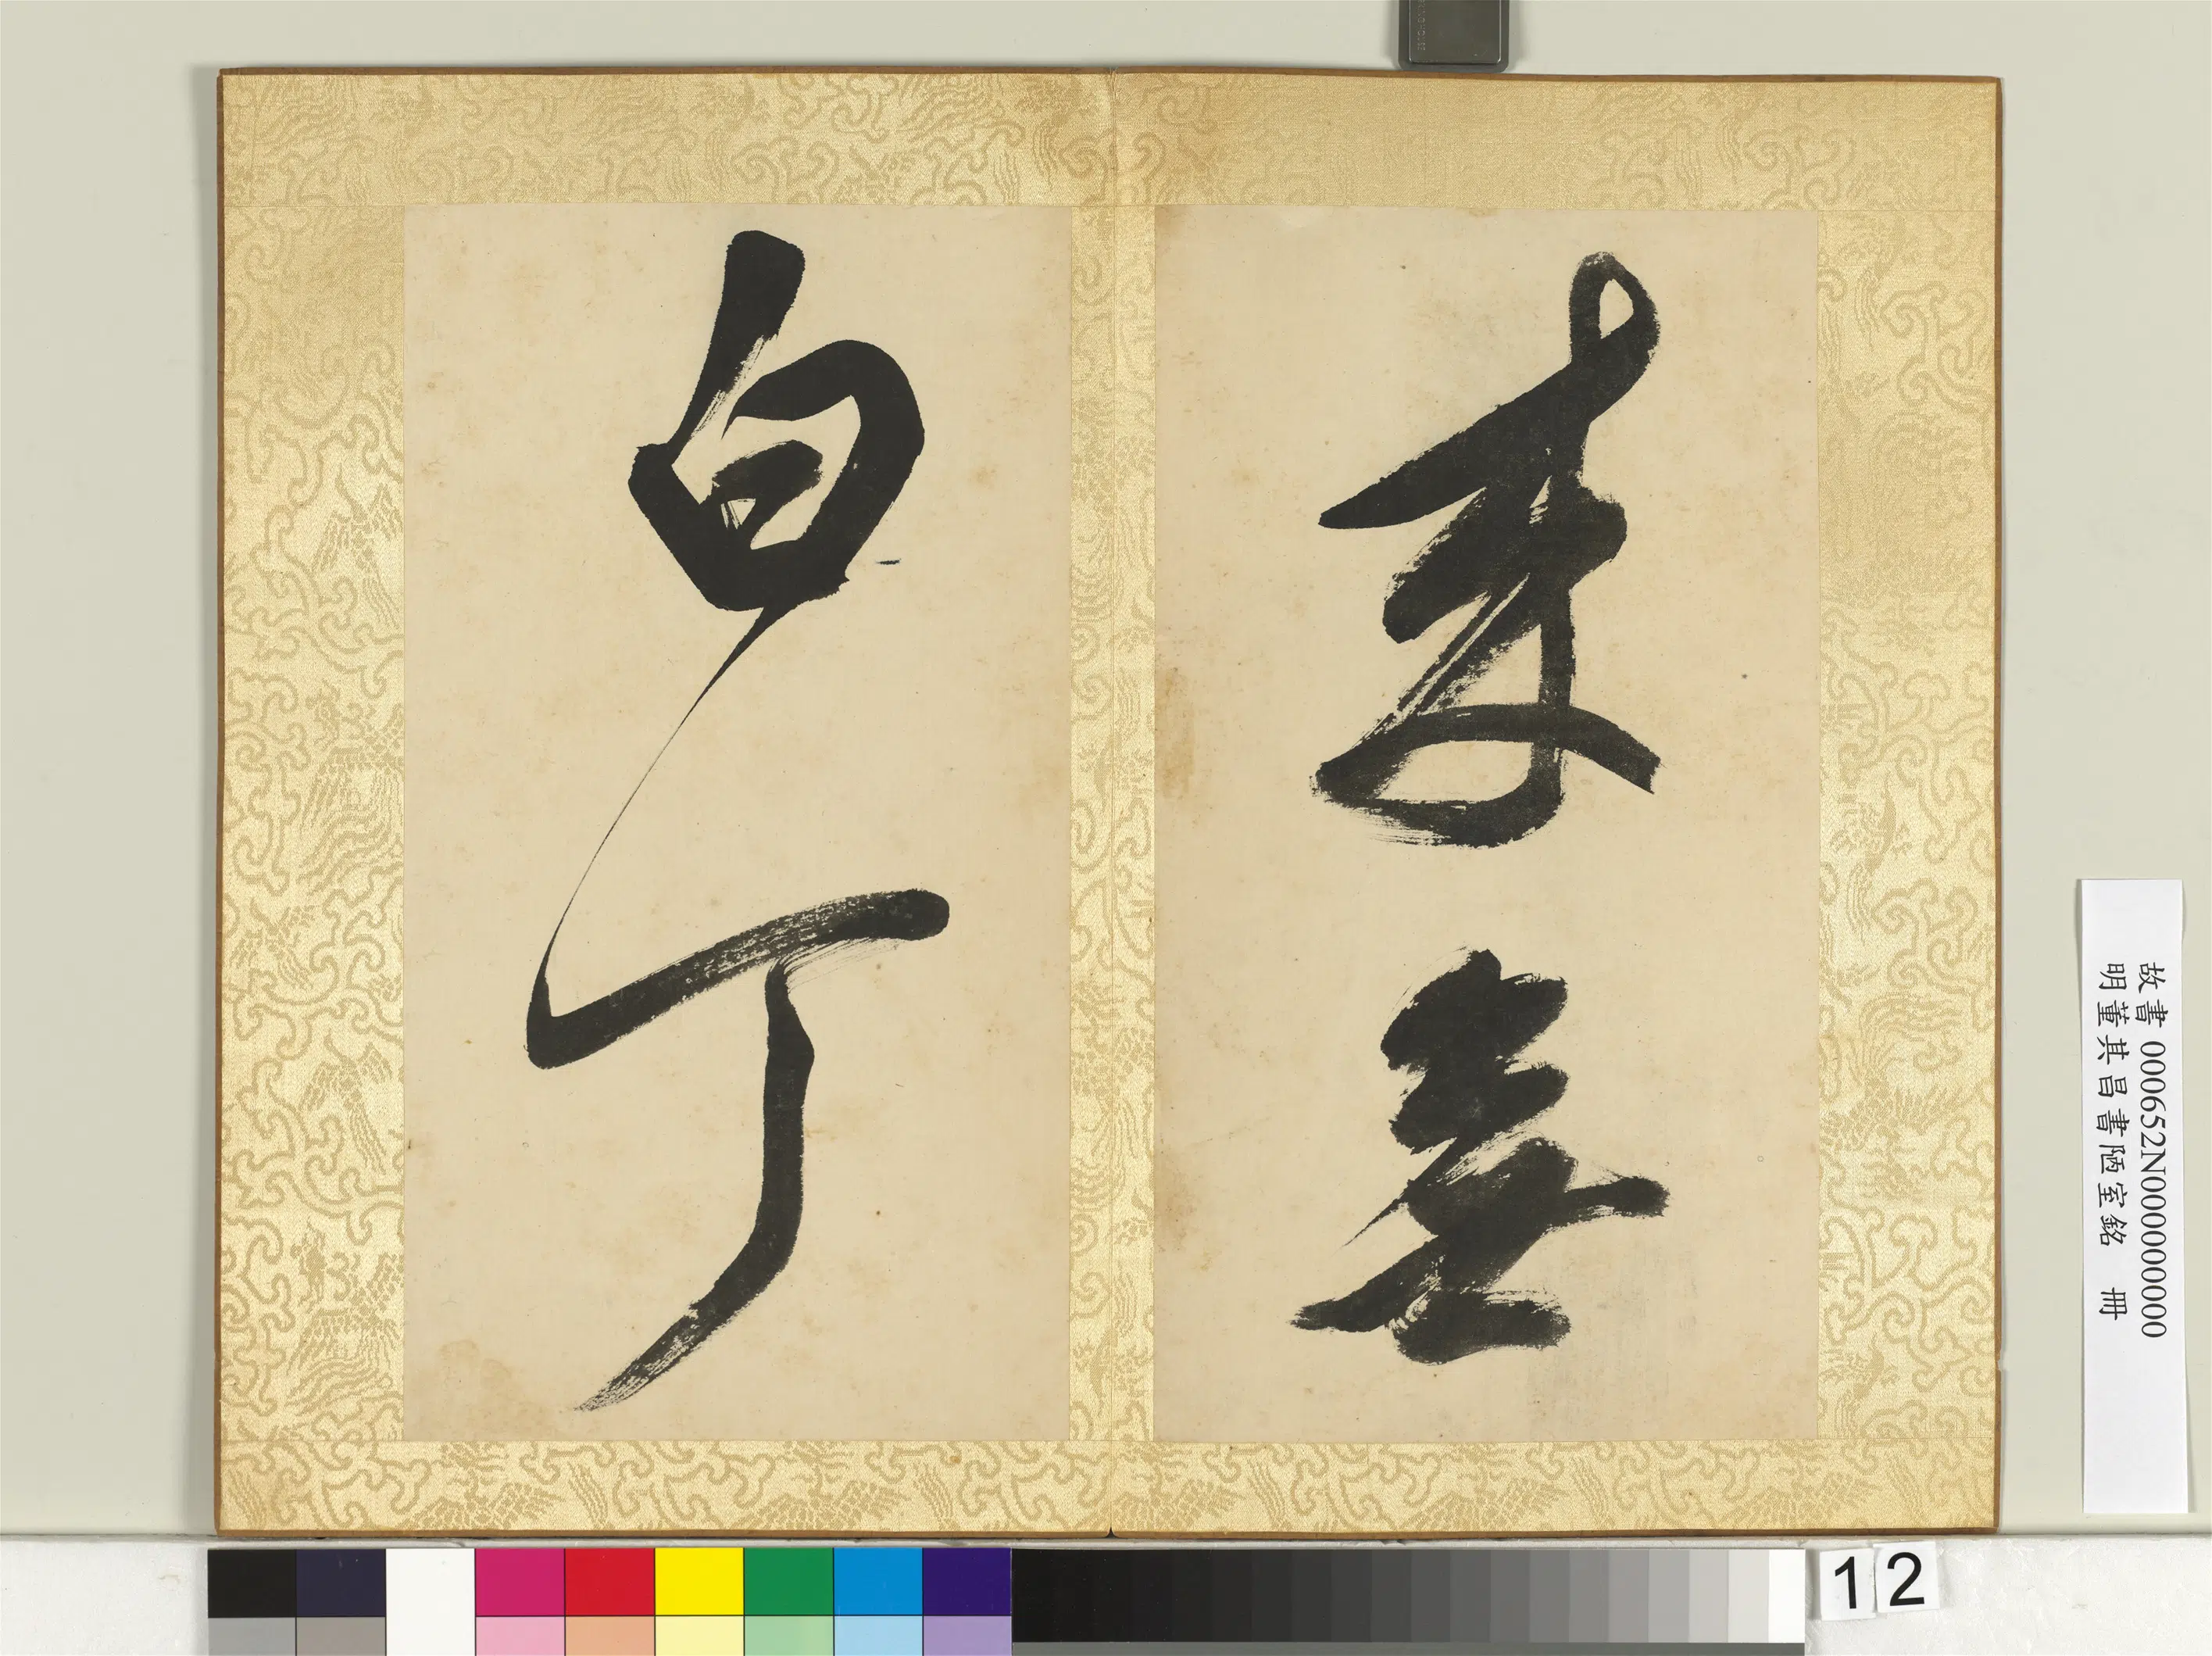 來無
白丁
故書 000652N000000000
明董其昌書陋室銘 冊
12